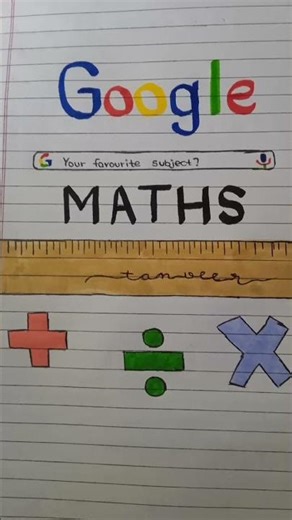 Google
G Your favourite subject?
MATHS
tanveer
+ ÷ ×